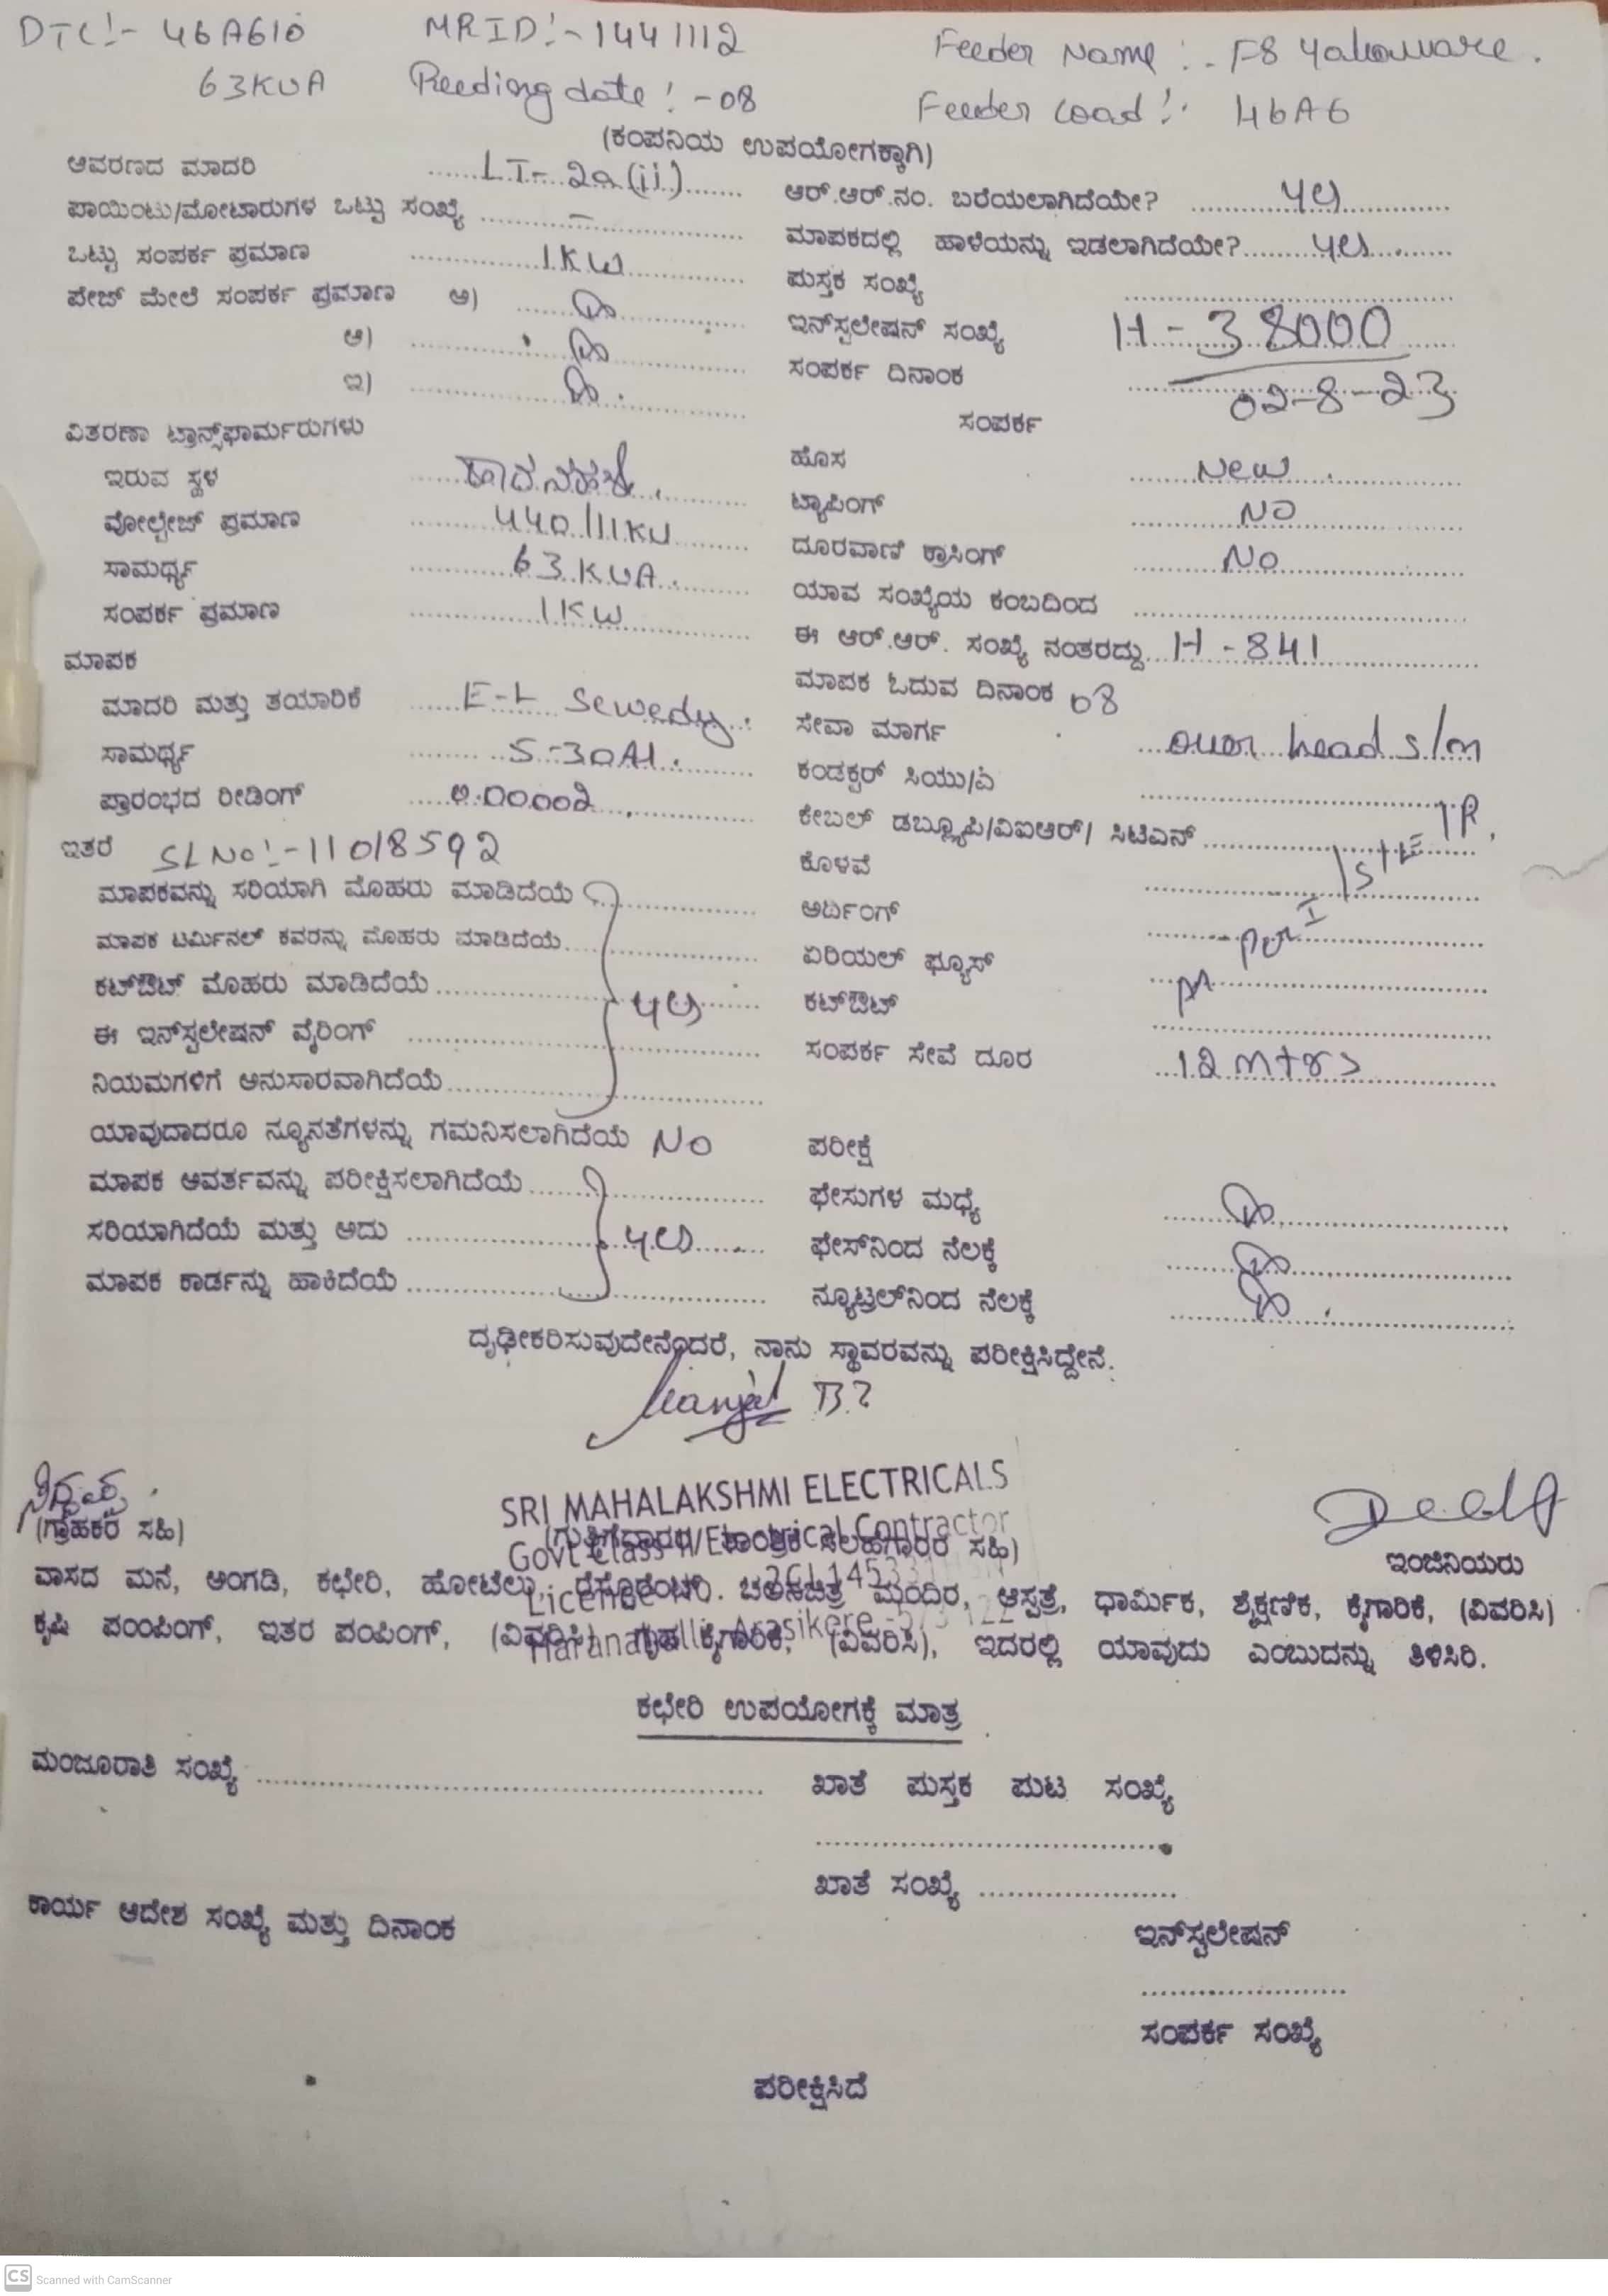 DTC:- 46A610 MRID:-1441112 Feeder Name :- F8
63KVA Reeding date:-08 Feeder Load:- 46A6
(ಕಂಪನಿಯ ಉಪಯೋಗಕ್ಕಾಗಿ)
ಆವರಣದ ಮಾದರಿ LT-2a(ii) ಆರ್.ಆರ್.ನಂ. ಬರೆಯಲಾಗಿದೆಯೇ? yes
ಪಾಯಿಂಟು/ಮೋಟಾರುಗಳ ಒಟ್ಟು ಸಂಖ್ಯೆ - ಮಾಪಕದಲ್ಲಿ ಹಾಳೆಯನ್ನು ಇಡಲಾಗಿದೆಯೇ? yes
ಒಟ್ಟು ಸಂಪರ್ಕ ಪ್ರಮಾಣ 1KW ಪುಸ್ತಕ ಸಂಖ್ಯೆ
ಪೇಜ್ ಮೇಲೆ ಸಂಪರ್ಕ ಪ್ರಮಾಣ ಅ) ಇನ್‌ಸ್ಟಲೇಷನ್ ಸಂಖ್ಯೆ H-38000
ಆ) ಸಂಪರ್ಕ ದಿನಾಂಕ 02-8-23
ಇ) ಸಂಪರ್ಕ
ವಿತರಣಾ ಟ್ರಾನ್ಸ್‌ಫಾರ್ಮರುಗಳು ಹೊಸ New
ಇರುವ ಸ್ಥಳ ಟ್ಯಾಪಿಂಗ್ NO
ವೋಲ್ಟೇಜ್ ಪ್ರಮಾಣ 440/11KV ದೂರವಾಣಿ ಕ್ರಾಸಿಂಗ್ No
ಸಾಮರ್ಥ್ಯ 63KVA ಯಾವ ಸಂಖ್ಯೆಯ ಕಂಬದಿಂದ
ಸಂಪರ್ಕ ಪ್ರಮಾಣ 1KW ಈ ಆರ್.ಆರ್. ಸಂಖ್ಯೆ ನಂತರದ್ದು H-841
ಮಾಪಕ ಮಾಪಕ ಓದುವ ದಿನಾಂಕ 08
ಮಾದರಿ ಮತ್ತು ತಯಾರಿಕೆ E-L Sewedy ಸೇವಾ ಮಾರ್ಗ over head s/m
ಸಾಮರ್ಥ್ಯ 5-30A ಕಂಡಕ್ಟರ್ ಸಿಯು/ಎ
ಪ್ರಾರಂಭದ ರೀಡಿಂಗ್ 0.00002 ಕೇಬಲ್ ಡಬ್ಲ್ಯೂಪಿ/ವಿಐಆರ್/ ಸಿಟಿಎಸ್
ಇತರೆ SL No:-11018592 ಕೊಳವೆ
ಮಾಪಕವನ್ನು ಸರಿಯಾಗಿ ಮೊಹರು ಮಾಡಿದೆಯೆ ಅರ್ದಿಂಗ್
ಮಾಪಕ ಟರ್ಮಿನಲ್ ಕವರನ್ನು ಮೊಹರು ಮಾಡಿದೆಯೆ ಏರಿಯಲ್ ಫ್ಯೂಸ್
ಕಟ್‌ಔಟ್ ಮೊಹರು ಮಾಡಿದೆಯೆ yes ಕಟ್‌ಔಟ್
ಈ ಇನ್‌ಸ್ಟಲೇಷನ್ ವೈರಿಂಗ್ ಸಂಪರ್ಕ ಸೇವೆ ದೂರ 12 mtrs
ನಿಯಮಗಳಿಗೆ ಅನುಸಾರವಾಗಿದೆಯೆ
ಯಾವುದಾದರೂ ನ್ಯೂನತೆಗಳನ್ನು ಗಮನಿಸಲಾಗಿದೆಯೆ NO ಪರೀಕ್ಷೆ
ಮಾಪಕ ಆವರ್ತವನ್ನು ಪರೀಕ್ಷಿಸಲಾಗಿದೆಯೆ ಫೇಸುಗಳ ಮಧ್ಯೆ
ಸರಿಯಾಗಿದೆಯೆ ಮತ್ತು ಅದು yes ಫೇಸ್‌ನಿಂದ ನೆಲಕ್ಕೆ
ಮಾಪಕ ಕಾರ್ಡನ್ನು ಹಾಕಿದೆಯೆ ನ್ಯೂಟ್ರಲ್‌ನಿಂದ ನೆಲಕ್ಕೆ
ದೃಢೀಕರಿಸುವುದೇನೆಂದರೆ, ನಾನು ಸ್ಥಾವರವನ್ನು ಪರೀಕ್ಷಿಸಿದ್ದೇನೆ.
SRI MAHALAKSHMI ELECTRICALS
(ಗ್ರಾಹಕರ ಸಹಿ) (ಗುತ್ತಿಗೆದಾರರ ಸಹಿ) ಇಂಜಿನಿಯರು
Govt Class-II Electrical Contractor
ವಾಸದ ಮನೆ, ಅಂಗಡಿ, ಕಛೇರಿ, ಹೋಟೆಲು, ರೆಸ್ಟೋರೆಂಟ್. ಚಲನಚಿತ್ರ ಮಂದಿರ, ಆಸ್ಪತ್ರೆ, ಧಾರ್ಮಿಕ, ಶೈಕ್ಷಣಿಕ, ಕೈಗಾರಿಕೆ, (ವಿವರಿಸಿ)
Licence No.
ಕೃಷಿ ಪಂಪಿಂಗ್, ಇತರ ಪಂಪಿಂಗ್, (ವಿವರಿಸಿ) ಗೃಹ ಕೈಗಾರಿಕೆ, (ವಿವರಿಸಿ), ಇದರಲ್ಲಿ ಯಾವುದು ಎಂಬುದನ್ನು ತಿಳಿಸಿರಿ.
Haranahalli, Arasikere
ಕಛೇರಿ ಉಪಯೋಗಕ್ಕೆ ಮಾತ್ರ
ಮಂಜೂರಾತಿ ಸಂಖ್ಯೆ ಖಾತೆ ಪುಸ್ತಕ ಪುಟ ಸಂಖ್ಯೆ
ಖಾತೆ ಸಂಖ್ಯೆ
ಕಾರ್ಯ ಆದೇಶ ಸಂಖ್ಯೆ ಮತ್ತು ದಿನಾಂಕ ಇನ್‌ಸ್ಟಲೇಷನ್
ಸಂಪರ್ಕ ಸಂಖ್ಯೆ
ಪರೀಕ್ಷಿಸಿದೆ
CS Scanned with CamScanner